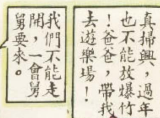 真掃興，過年
也不能放爆竹
！爸爸，帶我
去遊樂場！
我們不能走
開，一會舅
舅要來。